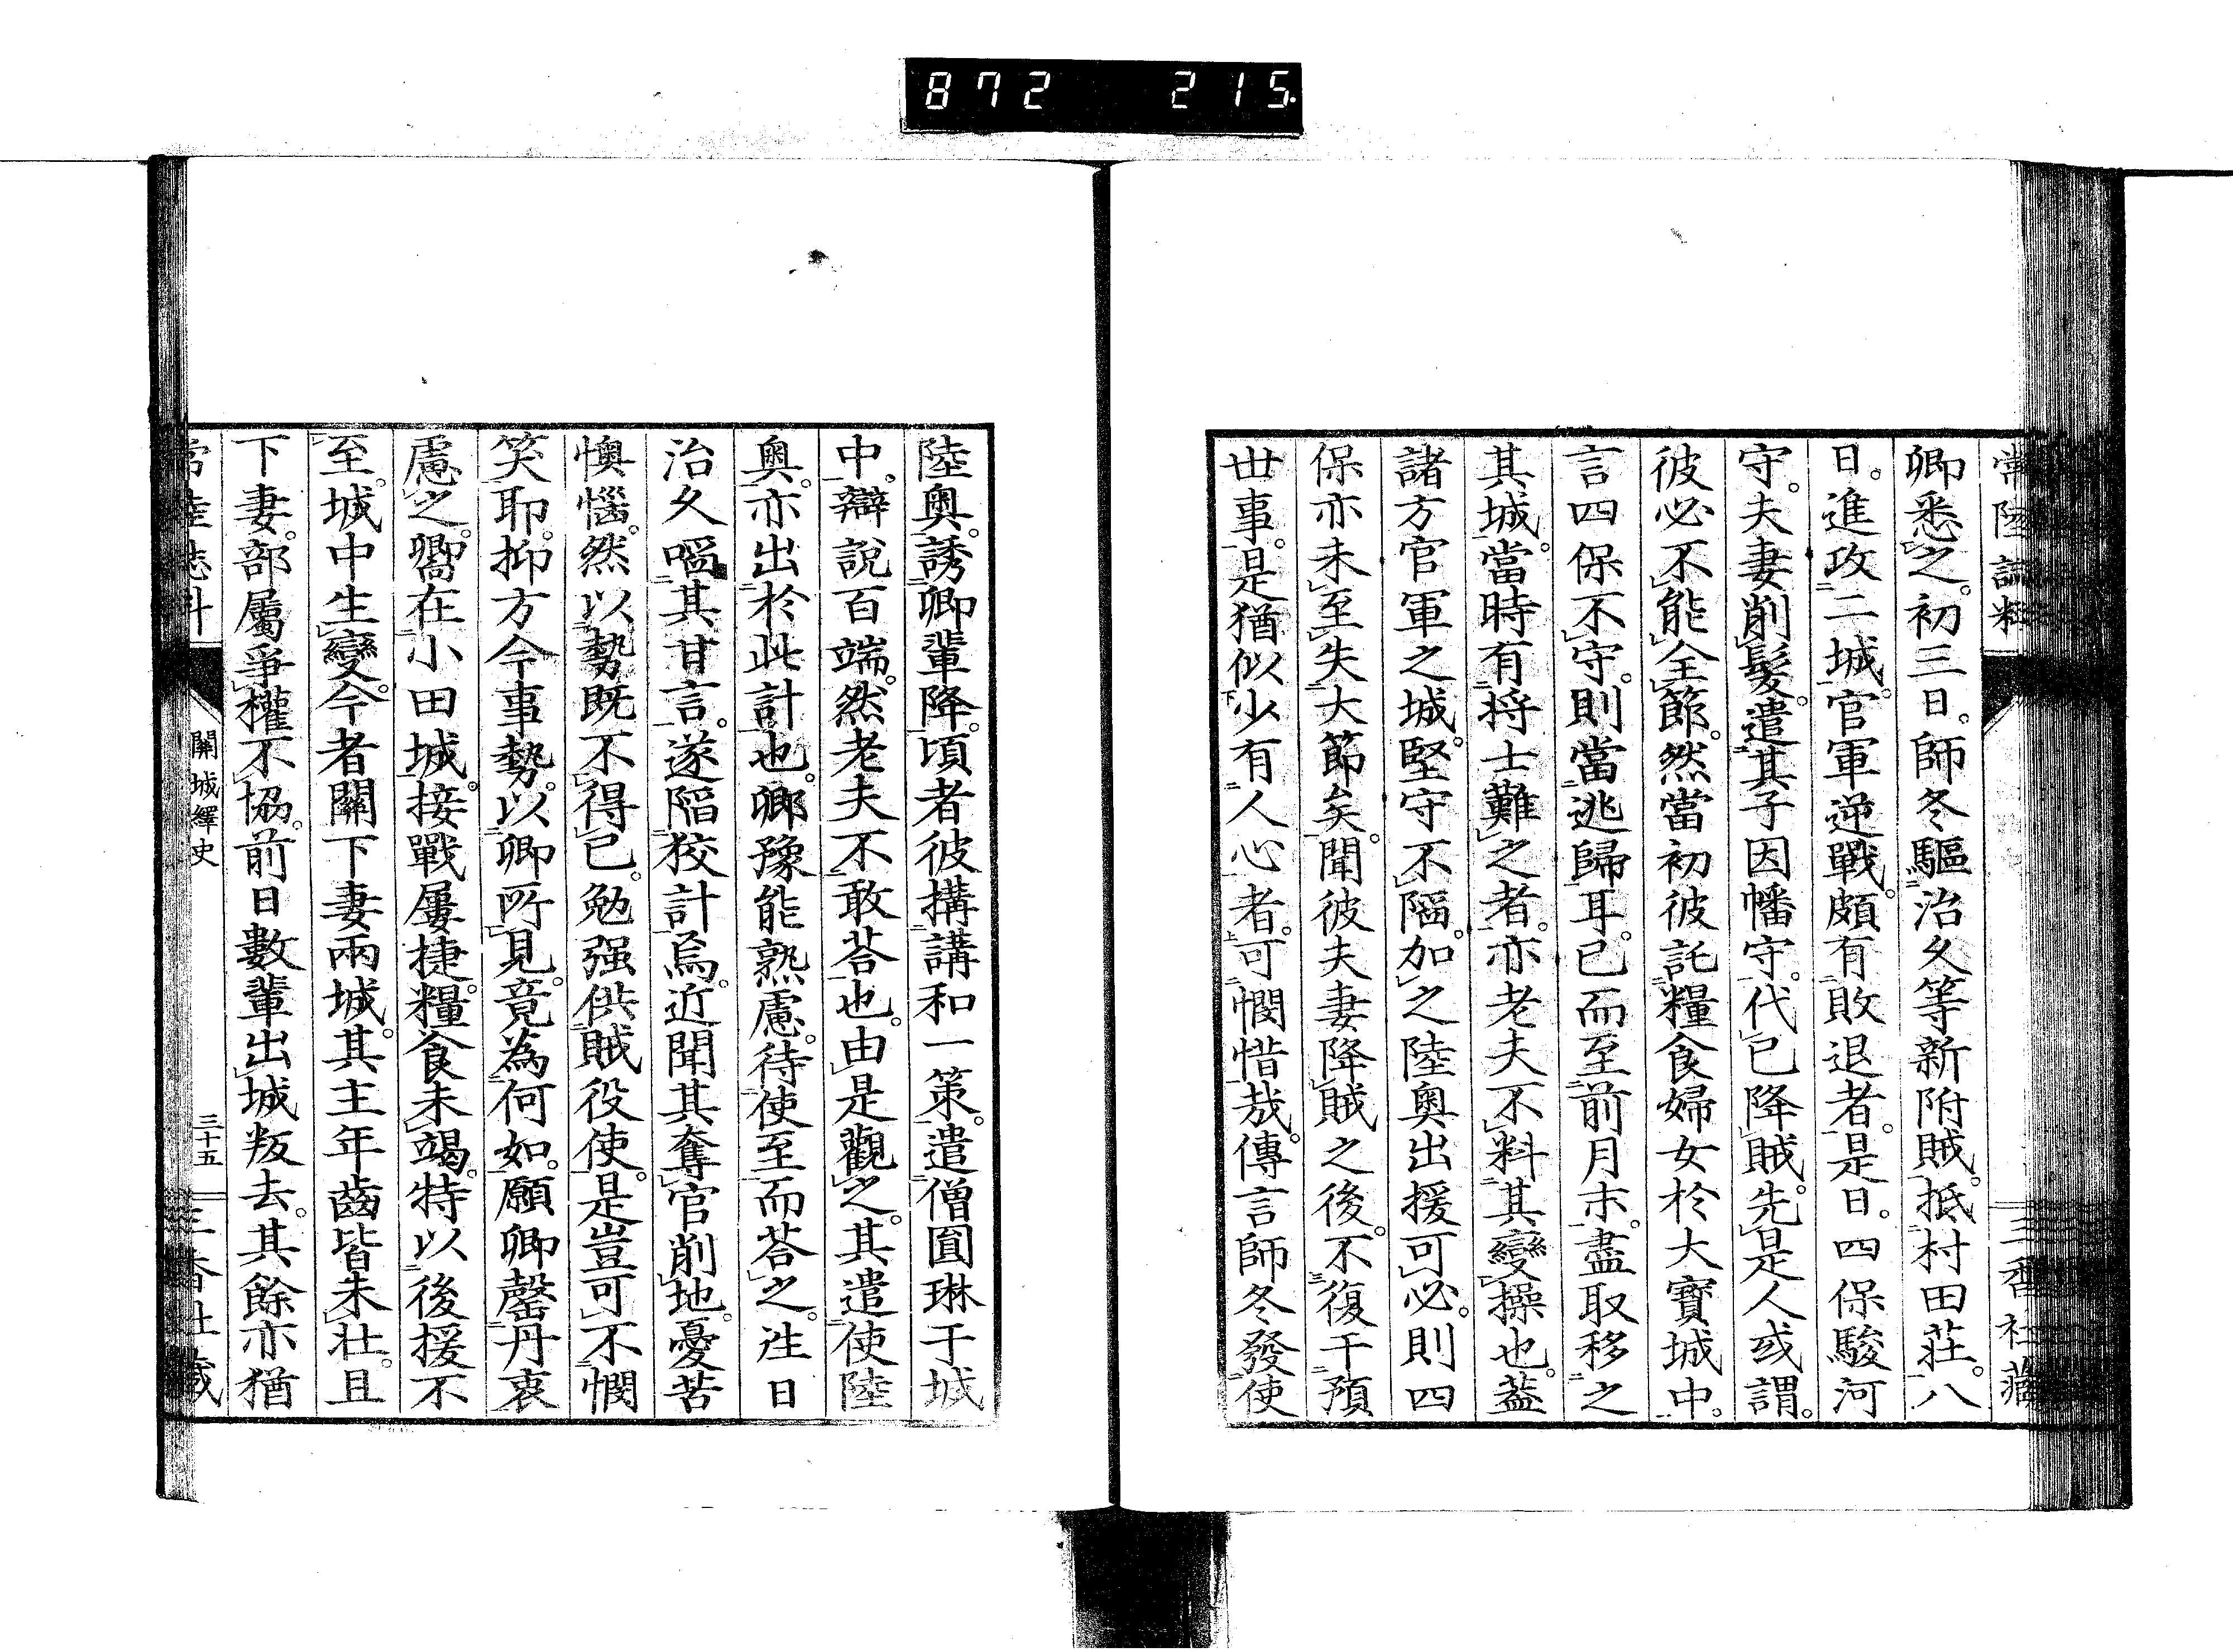 872 215.
卿悉之。初三日。師冬驅治久等新附賊。抵村田莊。八
日。進攻二城。官軍逆戰。頗有敗退者。是日。四保駿河
守。夫妻削髮。遣其子因幡守。代已降賊。先是人或謂。
彼必不能全節。然當初彼託糧食婦女於大寶城中。
言四保不守。則當逃歸耳。已而至前月末。盡取移之
其城。當時有将士難之者。亦老夫不料其變操也。蓋
諸方官軍之城。堅守不陷。加之陸奧出援可必。則四
保亦未至失大節矣。聞彼夫妻降賊之後。不復干預
世事。是猶似少有人心者。可憫惜哉。傳言師冬發使
陸奧。誘卿輩降。頃者彼搆講和一策。遣僧圓琳于城
中。辯說百端。然老夫不敢荅也。由是觀之。其遣使陸
奧。亦出於此計也。卿豫能熟慮。待使至而荅之。徃日
治久啗其甘言。遂陷狡計焉。近聞其奪官削地。憂苦
懊惱。然以勢既不得已。勉强供賊役使。是豈可不憫
笑耶。抑方今事勢。以卿所見。竟為何如。願卿罄丹衷
慮之。嚮在小田城。接戰屢捷。糧食未竭。特以後援不
至。城中生變。今者關下妻兩城。其主年齒皆未壯。且
下妻。部屬爭權不協。前日數輩出城叛去。其餘亦猶
關城繹史
三十五